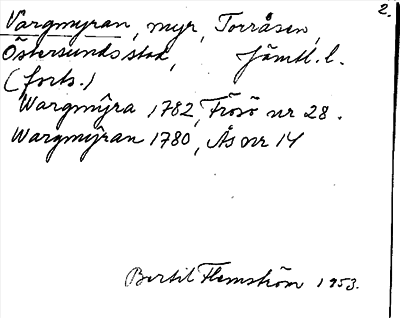 2.
Vargmyran, myr, Torråsen,
Östersunds stad, Jämtl. l.
(forts.)
Wargmÿra 1782, Frösö nr 28.
Wargmÿran 1780, Ås nr 14
Bertil Flemström 1953.